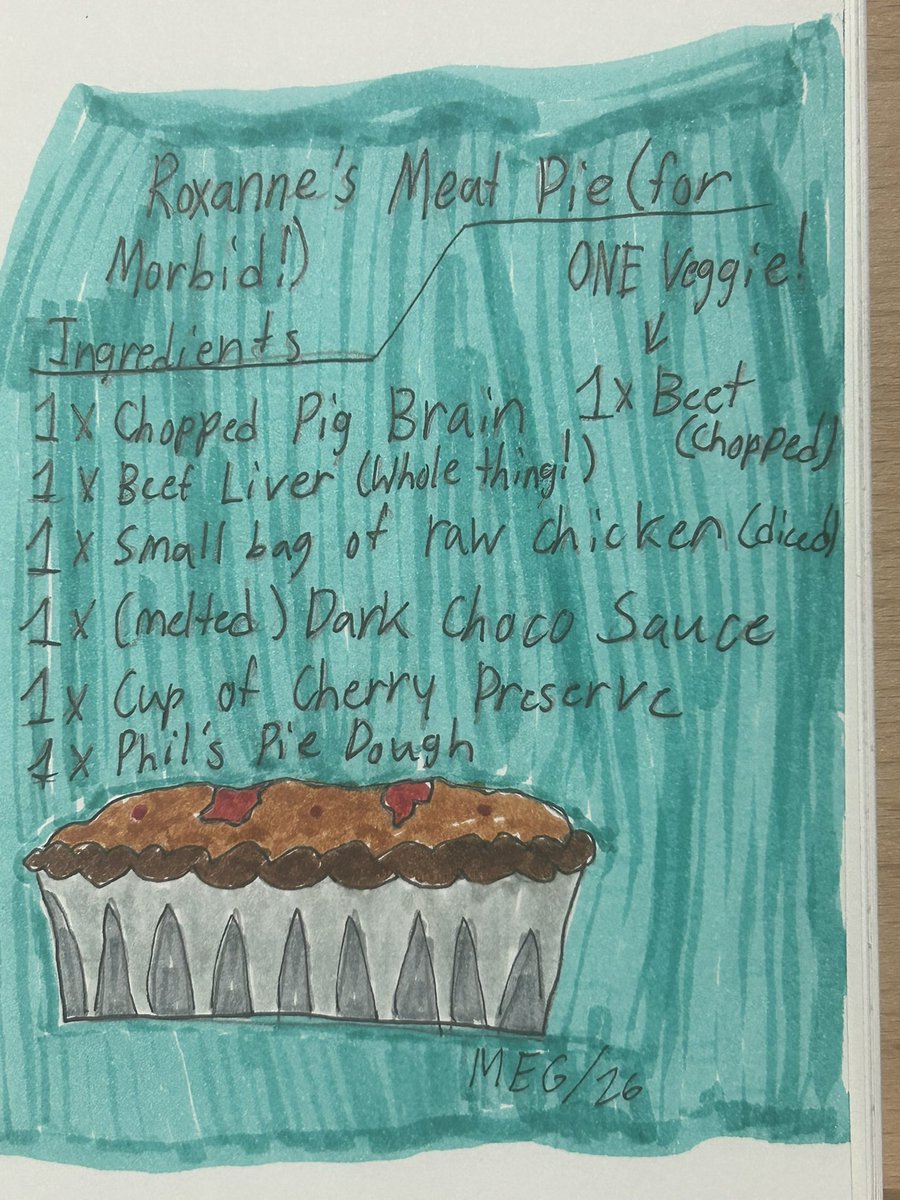 Roxanne's Meat Pie (for
Morbid!)
ONE Veggie!
1x Beet
(chopped)
Ingredients
1x Chopped Pig Brain
1x Beef Liver (Whole thing!)
1x Small bag of raw chicken (diced)
1x (melted) Dark Choco Sauce
1x Cup of Cherry Preserve
1x Phil's Pie Dough
MEG/26